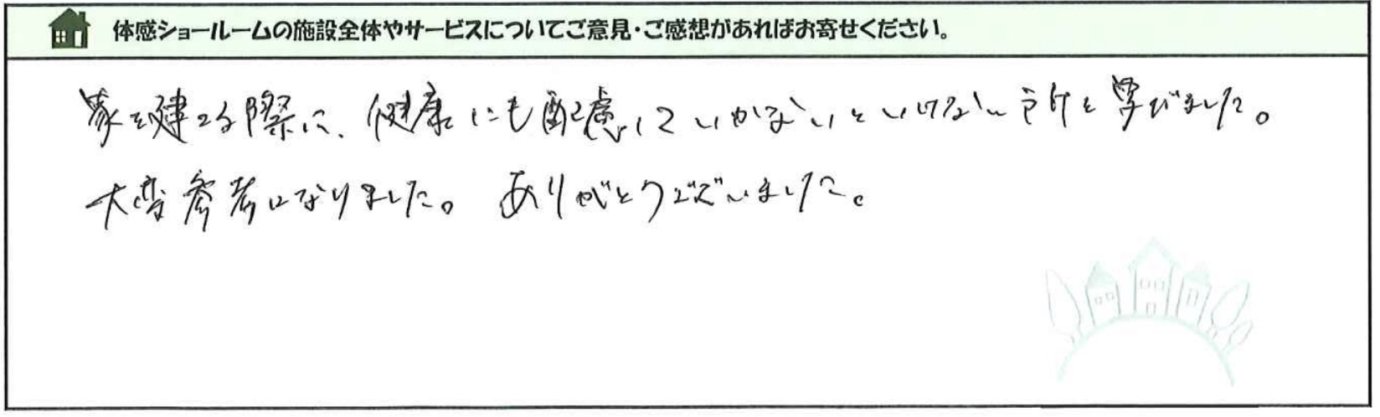 体感ショールームの施設全体やサービスについてご意見・ご感想があればお寄せください。
家を建てる際に、健康にも配慮していかないといけない を学びました。
大変参考になりました。ありがとうございました。